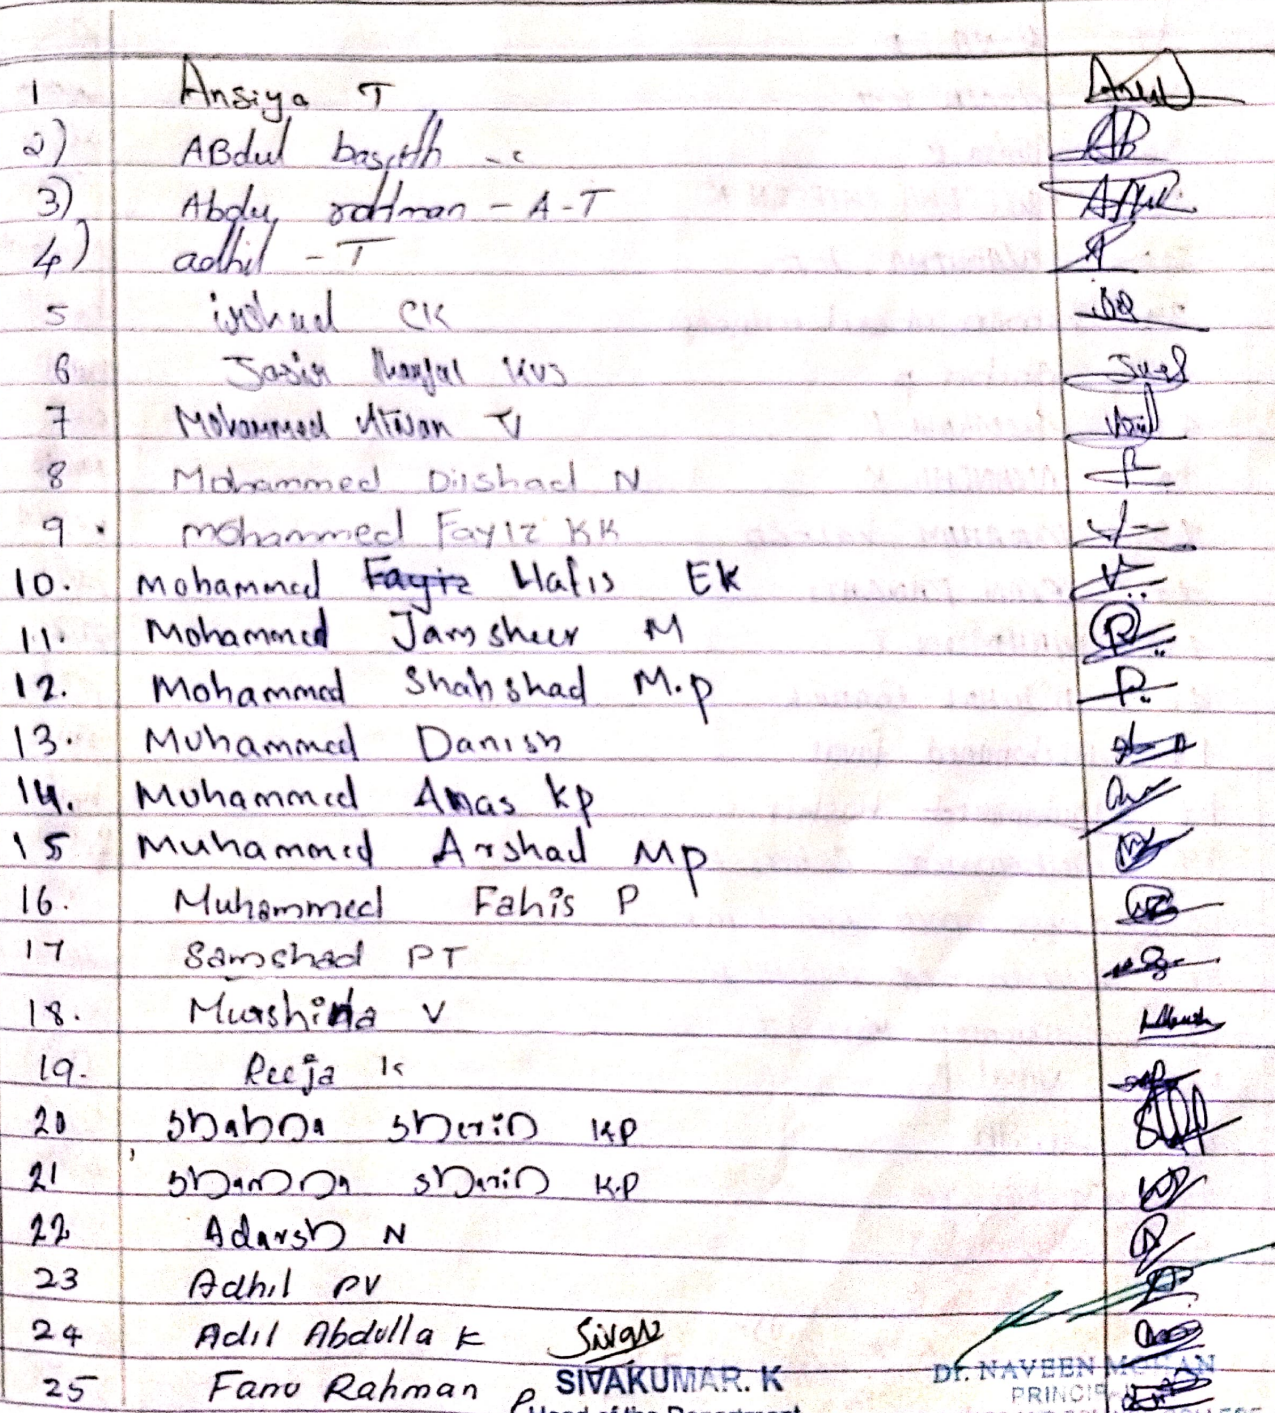 1 Ansiya T
2) ABdul basith - c
3) Abdu rahman - A - T
4) adhil - T
5 irshad CK
6 Jasir KVJ
7 Mohammed TV
8 Mohammed Dilshad N
9 . mohammed Fayiz KK
10. Mohammed Fayiz Hafis EK
11. Mohammed Jamsheer M
12. Mohammed Shahshad M.p
13. Muhammed Danish
14. Muhammed Anas kp
15 Muhammed Arshad Mp
16. Muhammed Fahis P
17 Samshad PT
18. Murshida V
19. Reeja K
20 Shahna Sherin KP
21 Shamna Sharin K.P
22 Adarsh N
23 Adhil PV
24 Adil Abdulla K
25 Fanu Rahman P
SIVAKUMAR. K
Head of the Department
Dr. NAVEEN MOHAN
PRINCIPAL